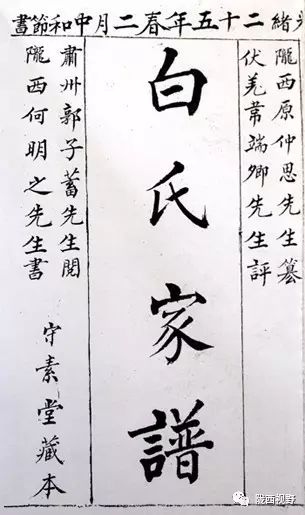 光緒二十五年春二月中和節書
隴西原仲思先生篡
伏羌常端卿先生評
白氏家譜
肅州郭子蓄先生閱
隴西何明之先生書
守素堂藏本
陇西视野